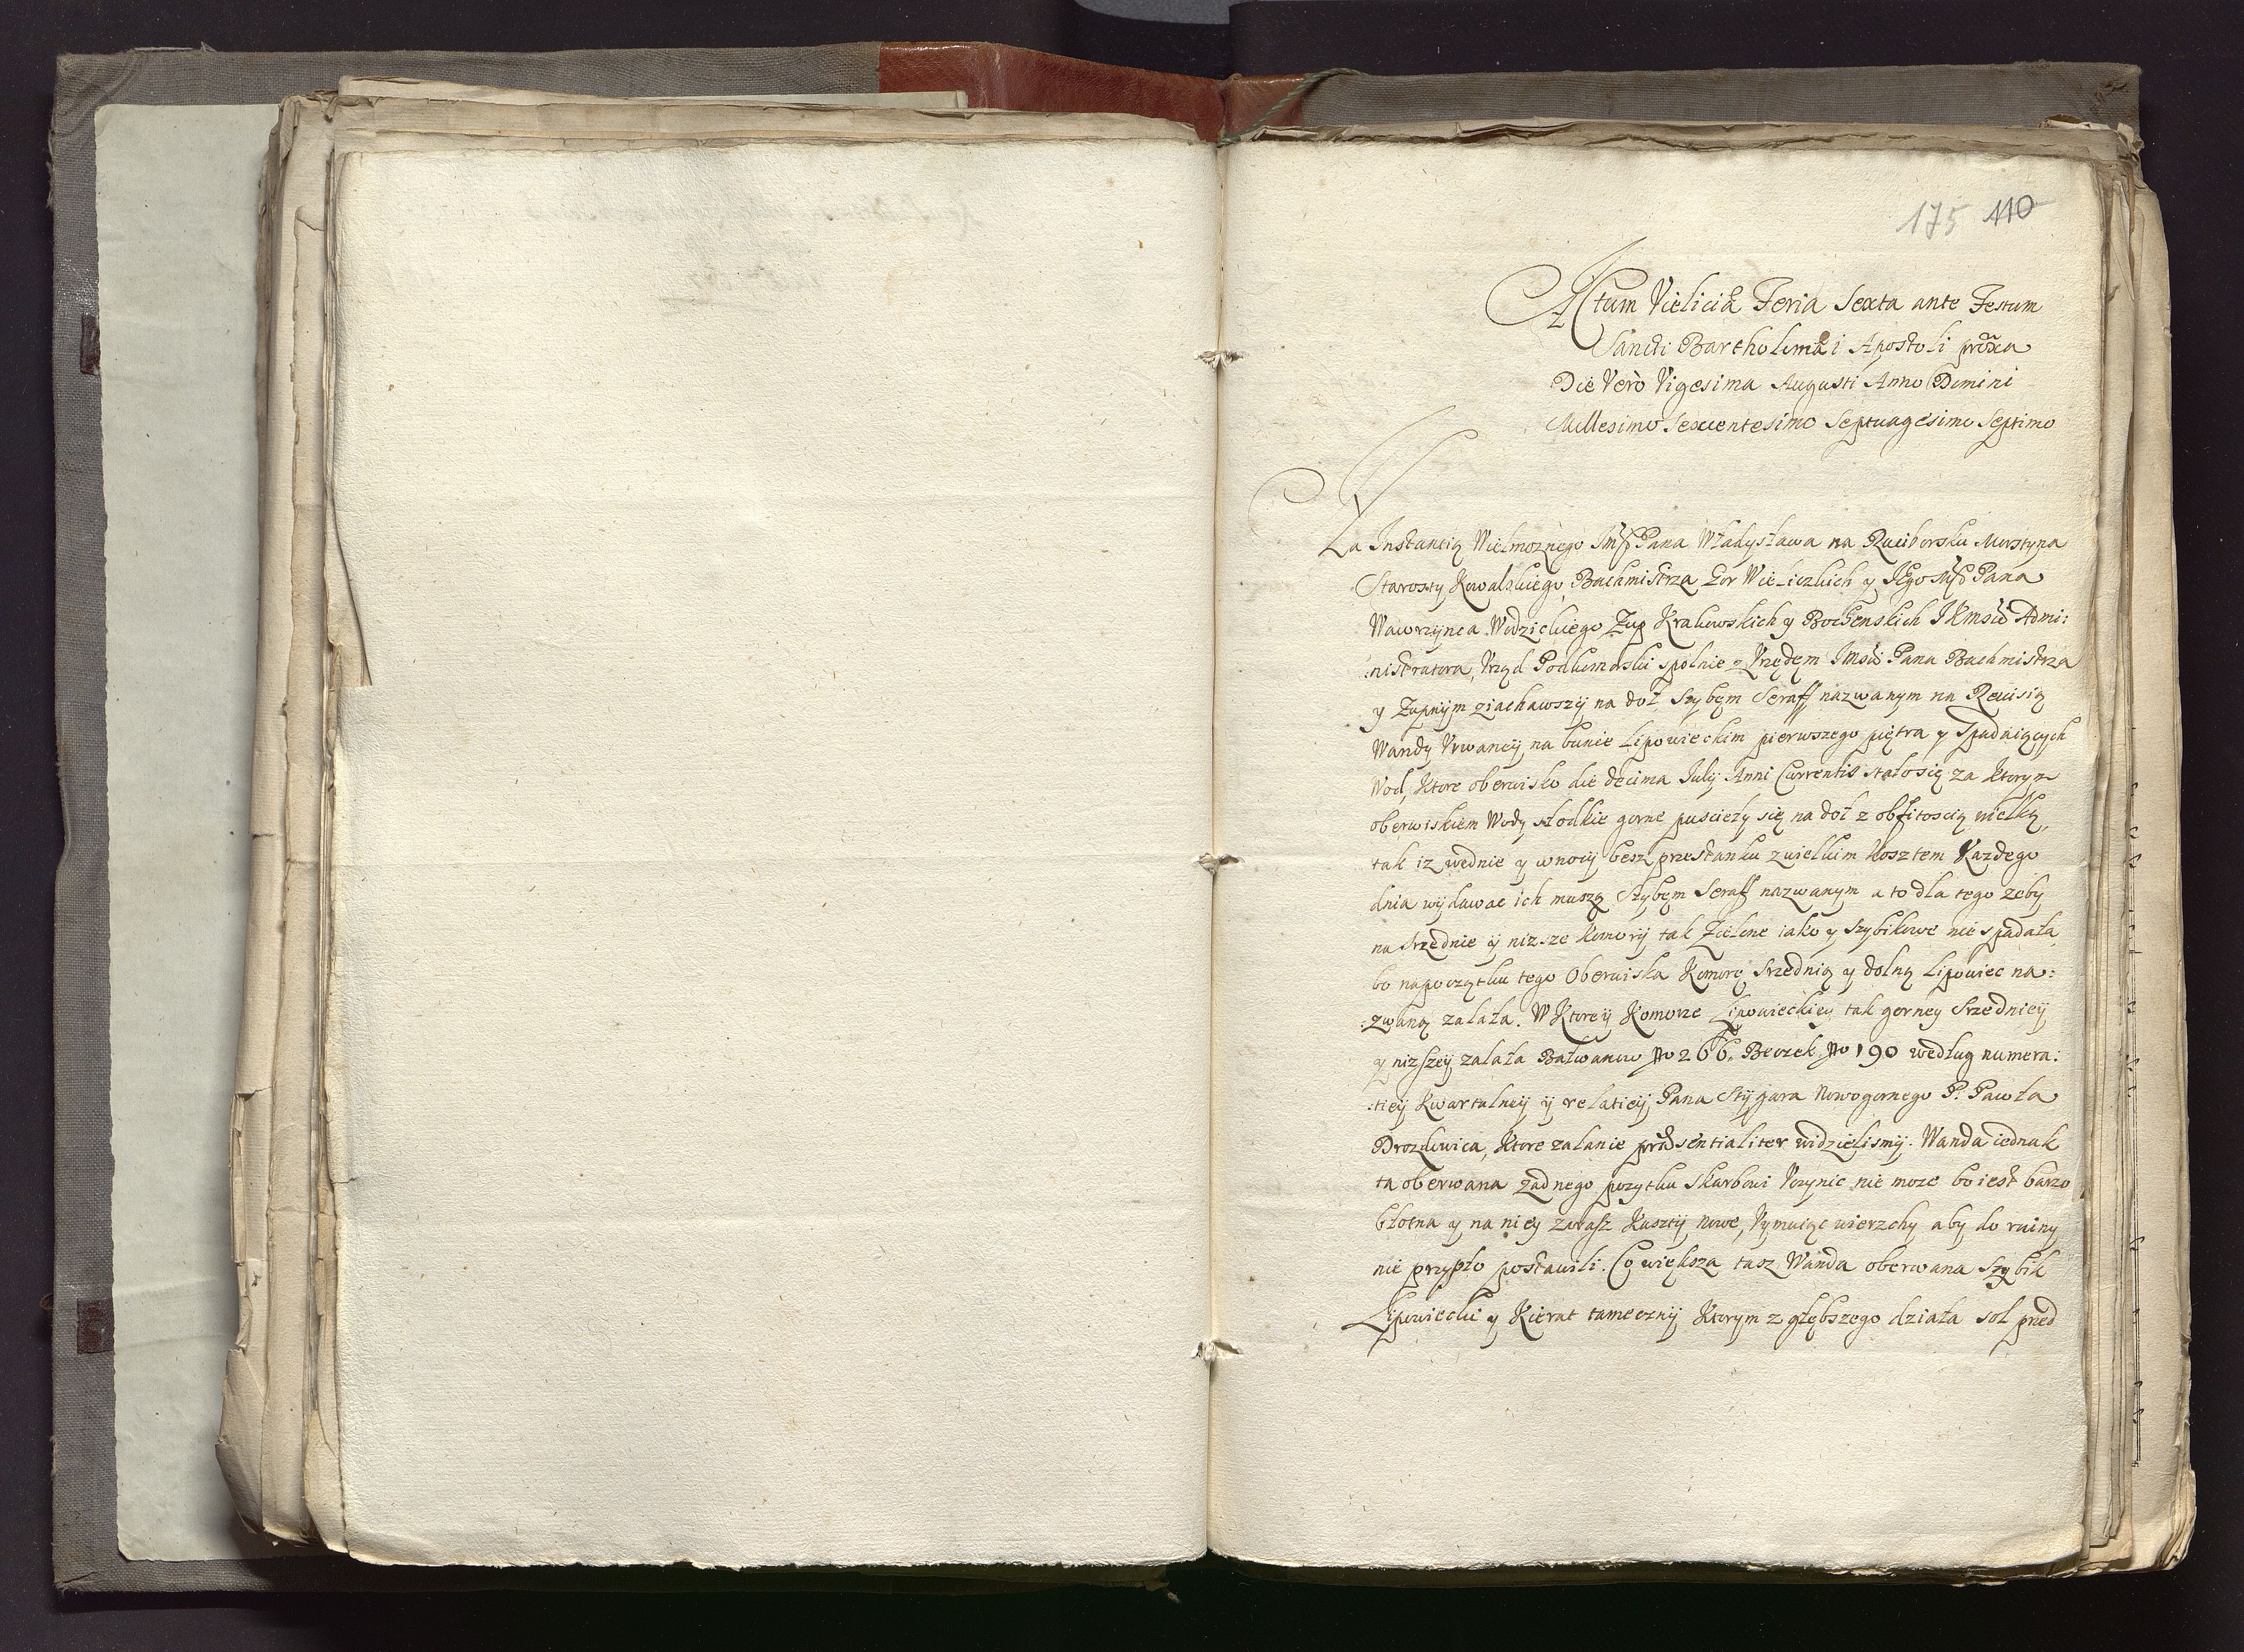 175 110
Actum Vieliciæ Feria Sexta ante Festum
Sancti Bartholomæi Apostoli prõxa
Die Verò Vigesima Augusti Anno Domini
Millesimo Sexcentesimo Septuagesimo Septimo
Za Instantią Wielmoznego Pana Władysława na Raciborsku Morstyna
Starosty Kowalskiego, Bachmistrza Zor Wieliczkich y Jego Pana
Wawrzynca Wodzickiego Zup Krakowskich y Bochenskich JKmsci Admi:
:nistratora, Vrząd Podkomorski spolnie z Vrzędęm Jmsci Pana Bachmistrza
y Zupnÿm ziachawszÿ na doł Szybęm Seraff nazwanym na Rewisią
Wandy Vrwaneÿ na bunie Lipowieckim pierwszego piętra y Spadaiących
Wod, Ktore oberwisko die decima Julÿ Anni Currentis stałosię za ktorym
oberwiskiem Wody słodkie gorne puscieły się na doł z obfitoscią wielką,
tak iz wednie y wnocÿ besz przestanku zwielkim kosztem Kazdego
dnia wydawac ich muszą Szybęm Seraff nazwanym a to dla tego zeby
na Srzednie ÿ nizsze Komorÿ tak Zielone iako y Szybikowe nie spadała
bo napoczątku tego Oberwiska Komorę Srzednią y dolną Lipowiec na:
:zwaną zalała. W Ktoreÿ Komorze Lipowieckieÿ tak gorney Srzednieÿ
y nizszeÿ zalała Bałwanow No 266. Beczek No 190 według numera:
:tieÿ Kwartalneÿ ÿ relatieÿ Pana Stÿgara Nowogornego P. Pawła
Drozdowica, Ktore zalanie præsentialiter widzielismÿ. Wanda iednak
ta oberwana zadnego pozytku Skarbowi Vczynic nie moze bo iest barzo
błotna y na nieÿ zarasz Kasztÿ nowe, Vymuiąc wierzchy aby do ruiny
nie przyszło postawili. Co większa tasz Wanda oberwana Szybik
Lipowiecki y Kierat tamecznÿ Ktorym z głębszego działa sol przed